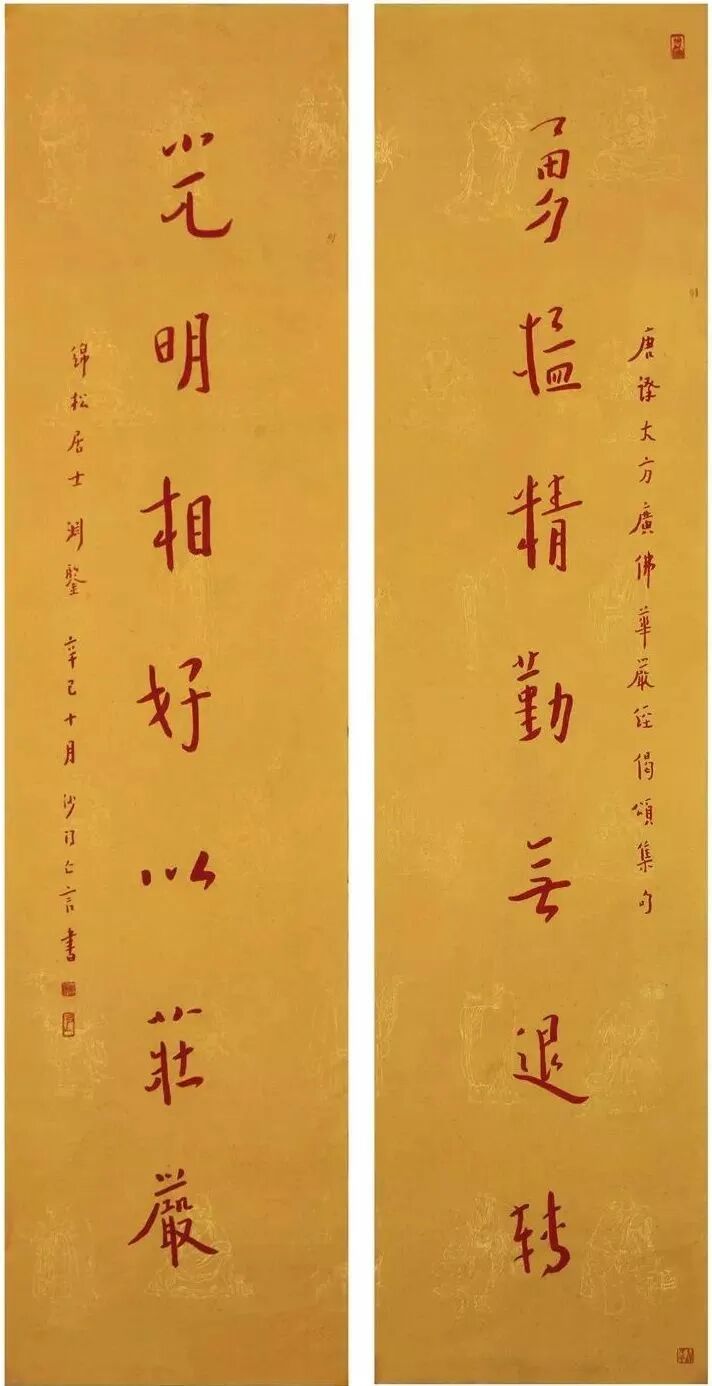 唐譯大方廣佛華嚴經偈頌集句
勇猛精勤無退轉
光明相好以莊嚴
錦松居士淵鑒 辛巳十月沙門亡言書